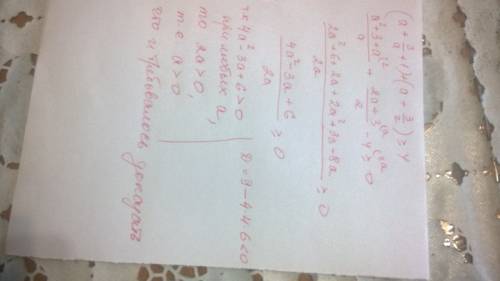 (a + 3/a + 1) + (a + 3/2) ≥ 4
(a² + 3 + a)/a + (2a + 3)/2 - 4 ≥ 0
(2a² + 6 + 2a + 2a² + 3a - 8a)/2a ≥ 0
(4a² - 3a + 6)/2a ≥ 0
т.к 4a² - 3a + 6 > 0
при любых a,
то 2a > 0,
т.е a > 0
D = 9 - 4·4·6 < 0
что и требовалось доказать